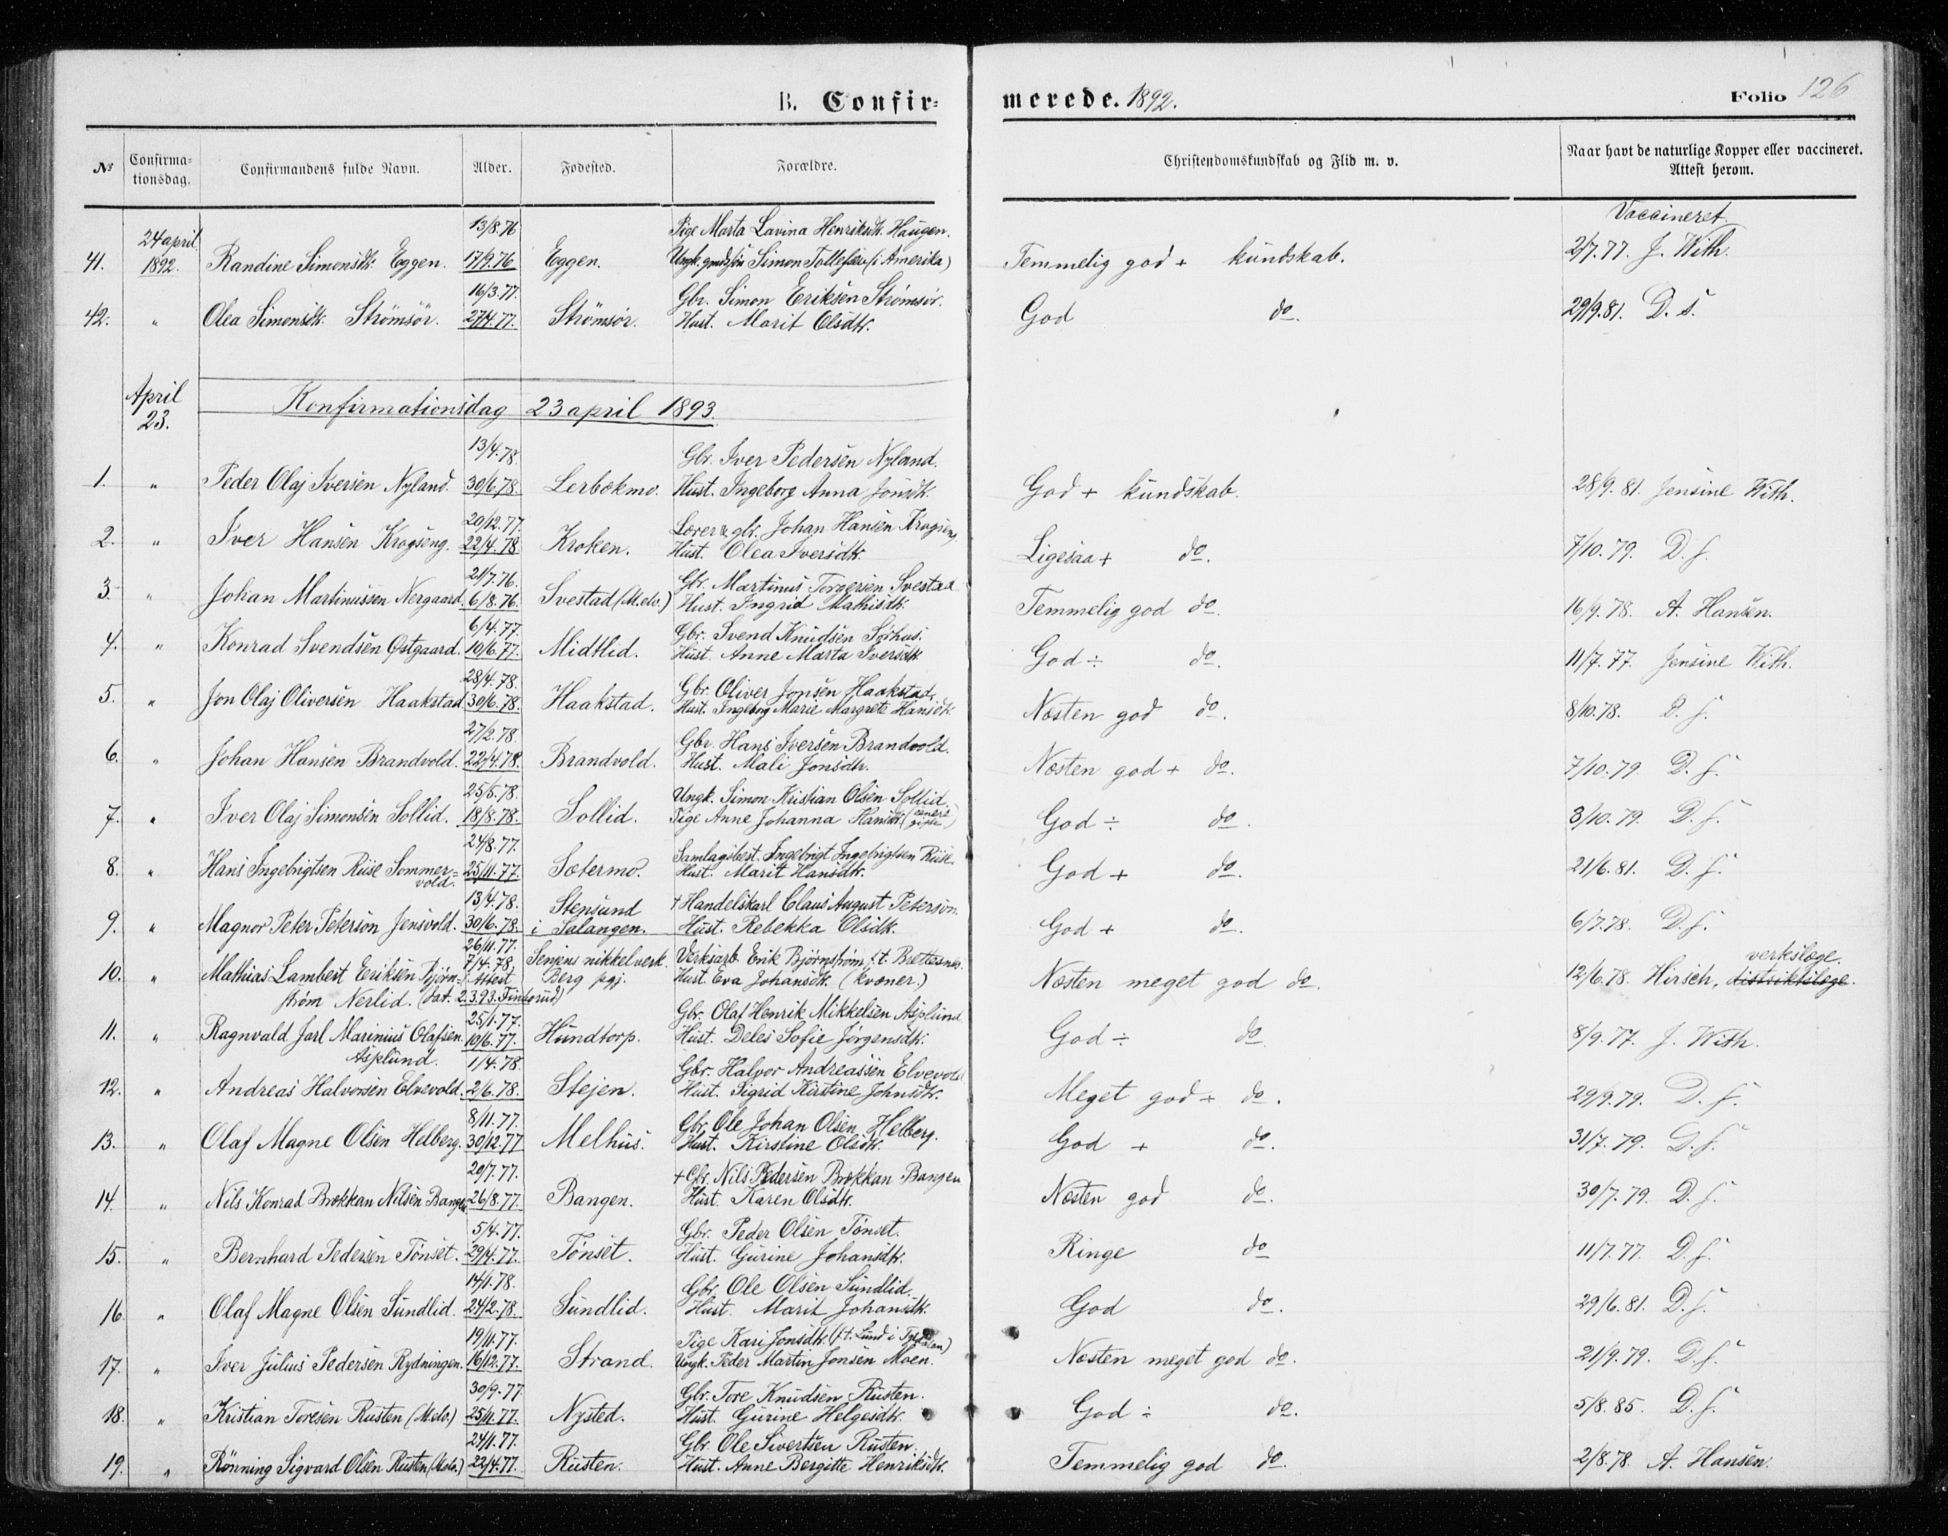 B. Confir-
merede. 1892.
Folio 126
№
Confirma-
tionsdag.
Confirmandens fulde Navn.
Alder.
Fødested.
Forældre.
Christendomskundskab og Flid m. v.
Naar havt de naturlige Kopper eller vaccineret.
Attest herom.
24 april 13/8.76 Pige Marta Lavina Henriksdtr. Haugen. Vaccineret
41. 1892. Randine Simonsdtr. Eggen. 17/9.76 Eggen. Ungk. Simon Tollefsen (i Amerika) Temmelig god + kundskab. 2/7.77. J. With.
16/3.77. Gbr. Simon Eriksen Strømsør.
42. " Olea Simonsdtr. Strømsør. 27/4.77. Strømsør. Hust. Marit Olsdtr. God do. 29/9.81. D. s.
April
23.
Konfirmationsdag 23 april 1893.
13/4.78. Gbr. Iver Pedersen Nyland.
1. " Peder Olaj Iversen Nyland. 30/6.78 Lerbækmo. Hust. Ingeborg Anna Jonsdtr. God + kundskab. 28/9.81. Jensine With.
20/12.77. Lærer & gbr. Johan Hansen Krogseng
2. " Iver Hansen Krogseng. 22/4.78 Kroken. Hust. Olea Iversdtr. Ligesaa + do. 7/10.79. D. s.
21/7.76. Gbr. Martinus Torgersen Svestad
3. " Johan Martinussen Nergaard. 6/8.76. Svestad (M.elv.) Hust. Ingrid Mathisdtr. Temmelig god do. 16/9.78. A. Hansen.
6/4.77. Gbr. Svend Knudsen Sørhus.
4. " Konrad Svendsen Østgaard. 10/6.77. Midtlid. Hust. Anne Marta Iversdtr. God ÷ do. 11/7.77. Jensine With.
28/4.78. Gbr. Oliver Jonsen Haakstad.
5. " Jon Olaj Oliversen Haakstad 30/6.78. Haakstad. Hust. Ingeborg Marie Margrete Hansdtr. Næsten god do. 8/10.78. D. s.
27/2.78. Gbr. Hans Iversen Brandvold.
6. " Johan Hansen Brandvold. 22/4.78. Brandvold. Hust. Mali Jonsdtr. Næsten god + do. 7/10.79. D. s.
25/5.78. Ungk. Simon Kristian Olsen Sollid.
7. " Iver Olaj Simonsen Sollid. 18/8.78. Sollid. Pige Anne Johanna Hansdtr. God ÷ do. 3/10.79. D. s.
24/8.77. Samlagsbest. Ingebrigt Ingebrigtsen Riise.
8. " Hans Ingebrigtsen Riise Sommer- 25/11.77. Sætermo. Hust. Marit Hansdtr. God + do. 21/6.81. D. s.
vold.
13/4.78. Stensund † Handelskarl Claus August Peterson.
9. " Magnor Peter Peterson Jensvold. 30/6.78. i Salangen. Hust. Rebekka Olsdtr. God + do. 6/7.78. D. s.
26/11.77.
7/4.78. Senjens nikkelverk Verksarb. Erik Bjørnstrøm, f.t. Brettesnes. verkslæge.
10. " Mathias Lambert Eriksen Bjørn- Attest Berg pgj. Hust. Eva Johansdtr. (kvæner.) Næsten meget god do. 12/6.78. Hirsch, distriktslæge.
strøm Nerlid. (dat. 2.3.93. Finborud)
25/1.77. Gbr. Olaf Henrik Mikkelsen Asplund
11. " Ragnvald Jarl Marinius Olafsen 10/6.77. Hundtorp. Hust. Deles Sofie Jørgensdtr. God ÷ do. 8/9.77. J. With.
Asplund.
1/4.78. Gbr. Halvor Andreassen Elvevold
12. " Andreas Halvorsen Elvevold. 2/6.78. Stejen. Hust. Sigrid Kirstine Johnsdtr. Meget god + do. 29/9.79. D. s.
8/11.77. Gbr. Ole Johan Olsen Helberg.
13. " Olaf Magne Olsen Helberg. 30/12.77 Melhus. Hust. Kirstine Olsdtr. God + do. 31/7.79. D. s.
20/7.77. † Gbr. Nils Pedersen Brækkan Bangen
14. " Nils Konrad Brækkan Nilsen Bangen 26/8.77. Bangen. Hust. Karen Olsdtr. Næsten god do. 30/7.79. D. s.
5/4.77. Gbr. Peder Olsen Tønset.
15. " Bernhard Pedersen Tønset. 29/4.77. Tønset. Hust. Gurine Johansdtr. Ringe do 11/7.77. D. s.
14/1.78. Gbr. Ole Olsen Sundlid.
16. " Olaf Magne Olsen Sundlid. 24/2.78. Sundlid. Hust. Marit Johansdtr. God do. 29/6.81. D. s.
19/11.77. Pige Kari Jonsdtr. (f.t. Lund i Tyldalen)
17. " Iver Julius Pedersen Rydningen. 16/12.77. Strand. Ungk. Peder Martin Jonsen Moen. Næsten meget god do. 21/9.79. D. s.
30/9.77. Gbr. Tore Knudsen Rusten.
18. " Kristian Toresen Rusten (M.elv.) 25/11.77. Nysted. Hust. Gurine Helgesdtr. God ÷ do. 5/8.85. D. s.
24/1.77. Gbr. Ole Sivertsen Rusten.
19. " Rønning Sigvard Olsen Rusten (M.elv.) 22/4.77. Rusten. Hust. Anne Bergitte Henriksdtr. Temmelig god do. 2/8.78. A. Hansen.